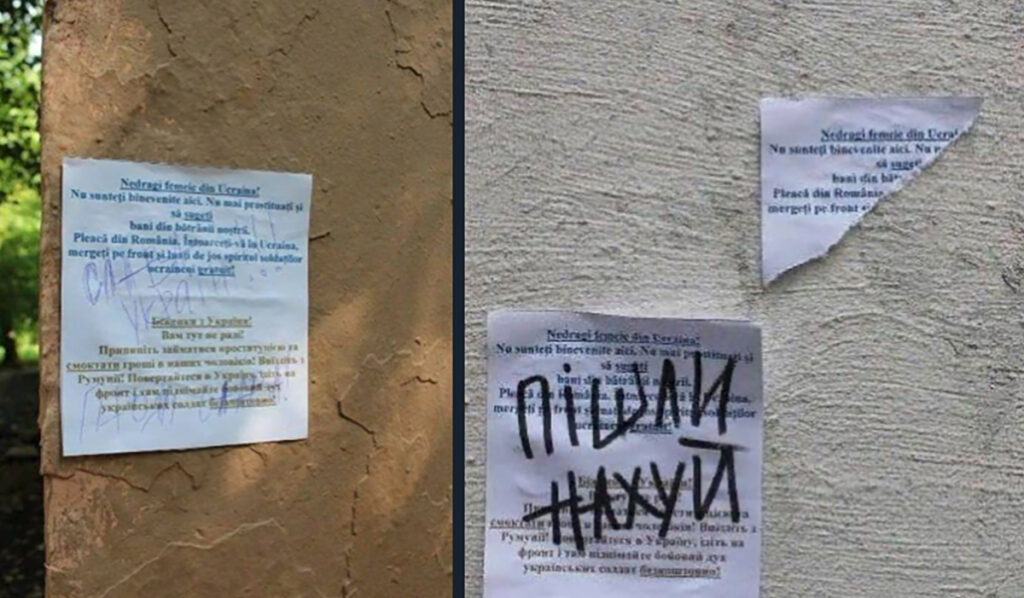 Nedragi femeie din Ucraina!
Nu sunteți binevenite aici. Nu mai prostituați și
să sugeți
bani din bătrânii noștrii.
Pleacă din România. Întoarceți-vă în Ucraina,
mergeți pe front și luați de jos spiritul soldaților
ucraineni gratuit!
Біженки з України!
Вам тут не раді!
Припиніть займатися проституцією та
смоктати гроші в наших чоловіків! Виїздіть з
Румунії! Повертайтеся в Україну, ідіть на
фронт і там піднімайте бойовий дух
українських солдат безкоштовно!
Nedragi femeie din Ucra
Nu sunteți binevenite aici. Nu
să sugeți
bani din
Pleacă din România.
mergeți pe front
Nedragi femeie din Ucraina!
Nu sunteți binevenite aici. Nu mai prostituați și
să sugeți
bani din
Pleacă din
ПІШЛИ
НАХУЙ
смоктати
Румунії! Повертайтеся в Україну, ідіть на
фронт і там піднімайте бойовий дух
українських солдат безкоштовно!